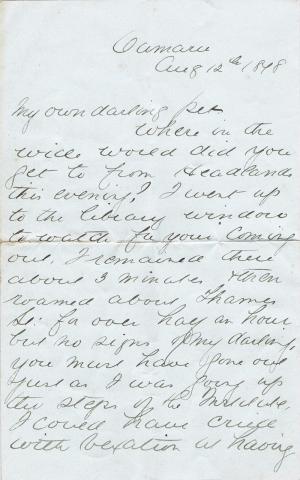 Oamaru
Aug 12th 1898
My own darling pet
Where in the
wide world did you
get to from Headlands
this evening? I went up
to the library window
to watch for your coming
out, I remained there
about 3 minutes then
roamed about Thames
St. for over half an hour
but no signs of my darling,
you must have gone out
just as I was going up
the steps of the Institute,
I could have cried
with vexation at having